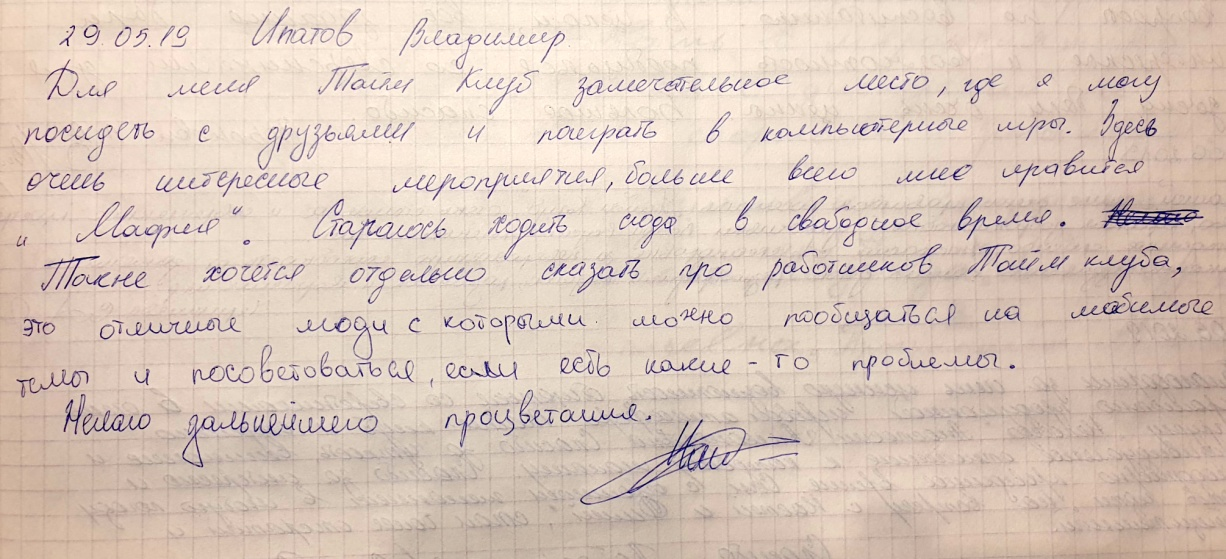 29.05.19 Ипатов Владимир
Для меня Тайм Клуб замечательное место, где я могу
посидеть с друзьями и поиграть в компьютерные игры. Здесь
очень интересные мероприятия, больше всего мне нравится
„Мафия“. Стараюсь ходить сюда в свободное время.
Также хочется отдельно сказать про работников Тайм клуба,
это отличные люди с которыми можно пообщаться на любимые
темы и посоветоваться, если есть какие-то проблемы.
Желаю дальнейшего процветания.